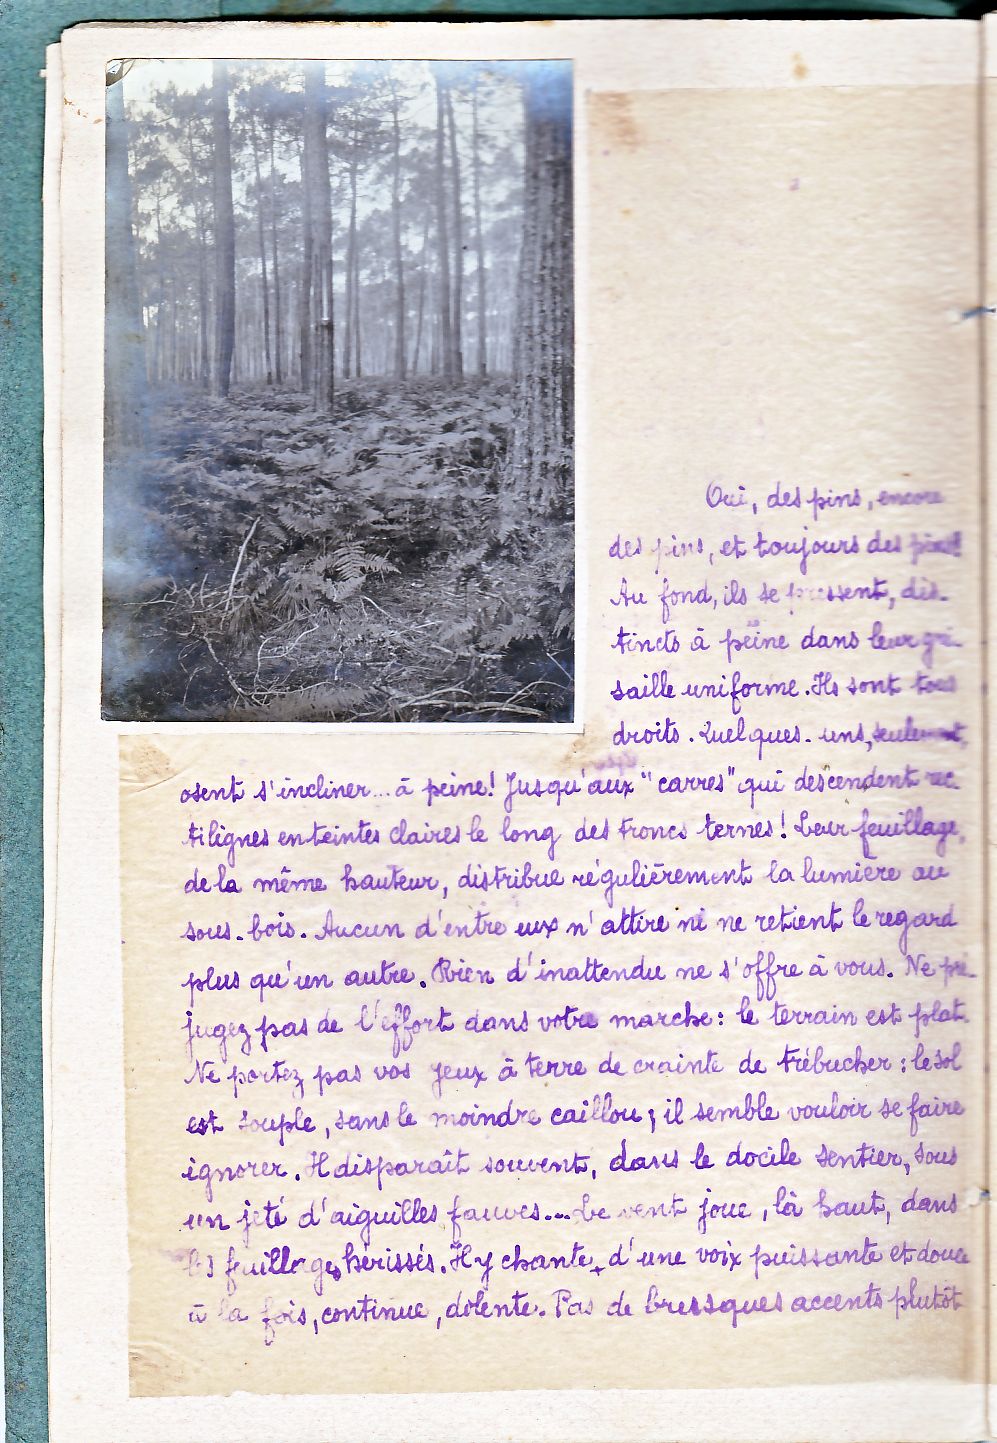 Oui, des pins, encore
des pins, et toujours des pins!
Au fond, ils se pressent, dis-
tincts à peine dans leur gri-
saille uniforme. Ils sont tous
droits. Quelques-uns, seulement,
osent s'incliner... à peine! Jusqu'aux "carres" qui descendent rec-
tilignes en teintes claires le long des troncs ternes! Leur feuillage,
de la même hauteur, distribue régulièrement la lumière au
sous-bois. Aucun d'entre eux n'attire ni ne retient le regard
plus qu'un autre. Rien d'inattendu ne s'offre à vous. Ne pré-
jugez pas de l'effort dans votre marche: le terrain est plat.
Ne portez pas vos yeux à terre de crainte de trébucher: le sol
est souple, sans le moindre caillou; il semble vouloir se faire
ignorer. Il disparaît souvent, dans le docile sentier, sous
un jeté d'aiguilles fauves... Le vent joue, là haut, dans
les feuillages hérissés. Il y chante, d'une voix puissante et douce
à la fois, continue, dolente. Pas de brusques accents plutôt